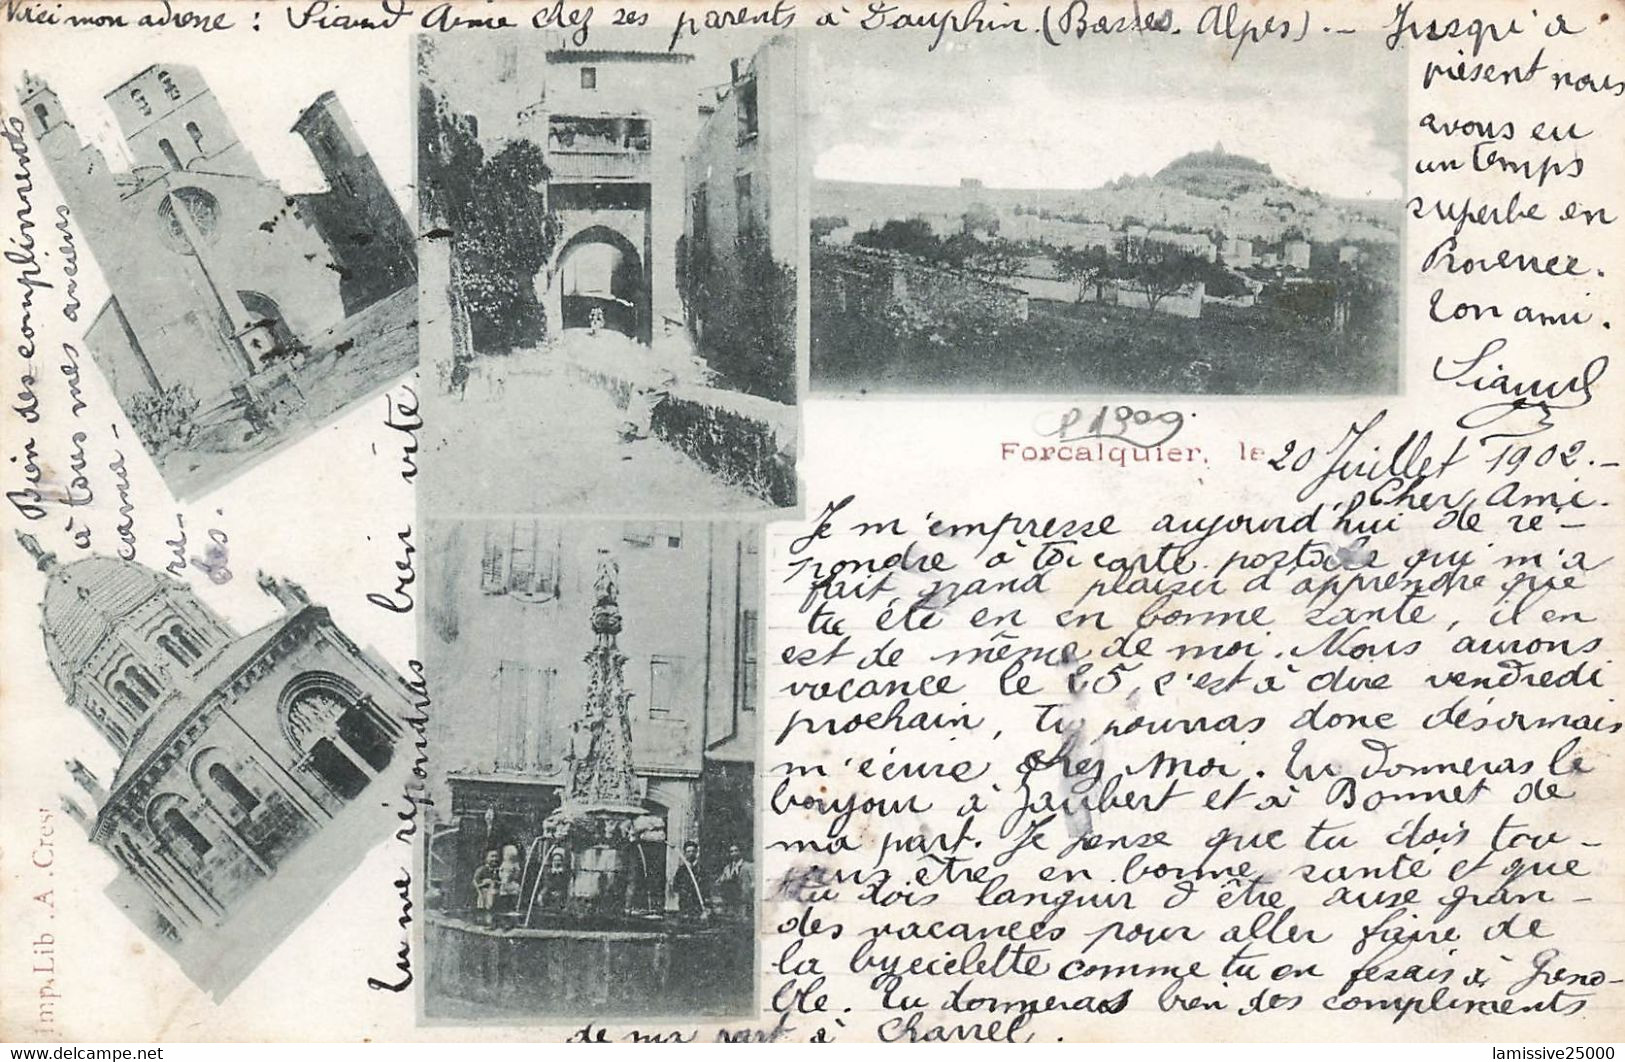 Voici mon adresse : Siaud Aimé chez ses parents à Dauphin. (Basses. Alpes). -
Forcalquier, le 20 Juillet 1902. -
Cher Ami.
Je m'empresse aujourd'hui de ré-
pondre à ta carte postale qui m'a
fait grand plaisir d'apprendre que
tu été en en bonne santé, il en
est de même de moi. Nous aurons
vacance le 25, c'est à dire vendredi
prochain, tu pourras donc désormais
m'écrire chez moi. Tu donneras le
bonjour à Jaubert et à Bonnet de
ma part. Je pense que tu dois tou-
jours être en bonne santé et que
tu dois languir d'être aux gran-
des vacances pour aller faire de
la bycielette comme tu en fesais à Greno-
ble. Tu donneras bien des compliments
de ma part à Charrel.
Tu me répondras bien vite.
Bien des compliments
à tous mes anciens
cama-
ra-
des.
Jusqu'à
présent nous
avons eu
un temps
superbe en
Provence.
Ton ami.
Siaud
P 1909
Imp. Lib. A. Crest
lamissive25000